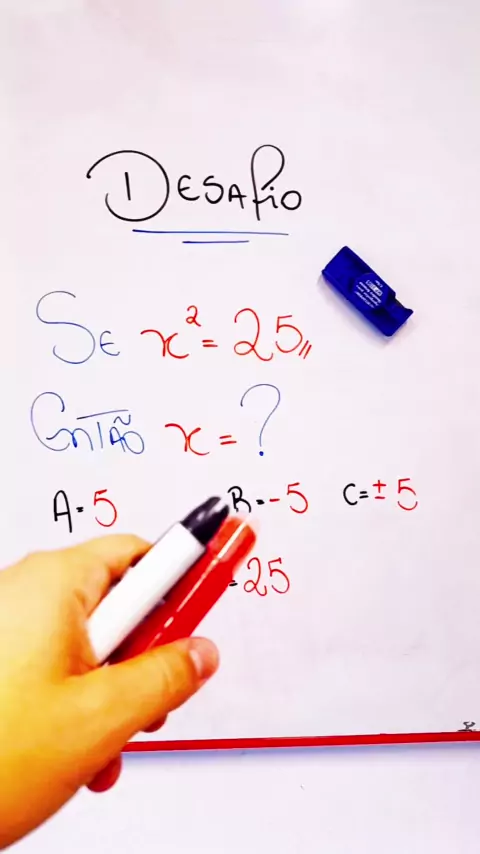 DESAFIO
SE x² = 25
ENTÃO x = ?
A = 5 B = -5 C = ± 5
= 25